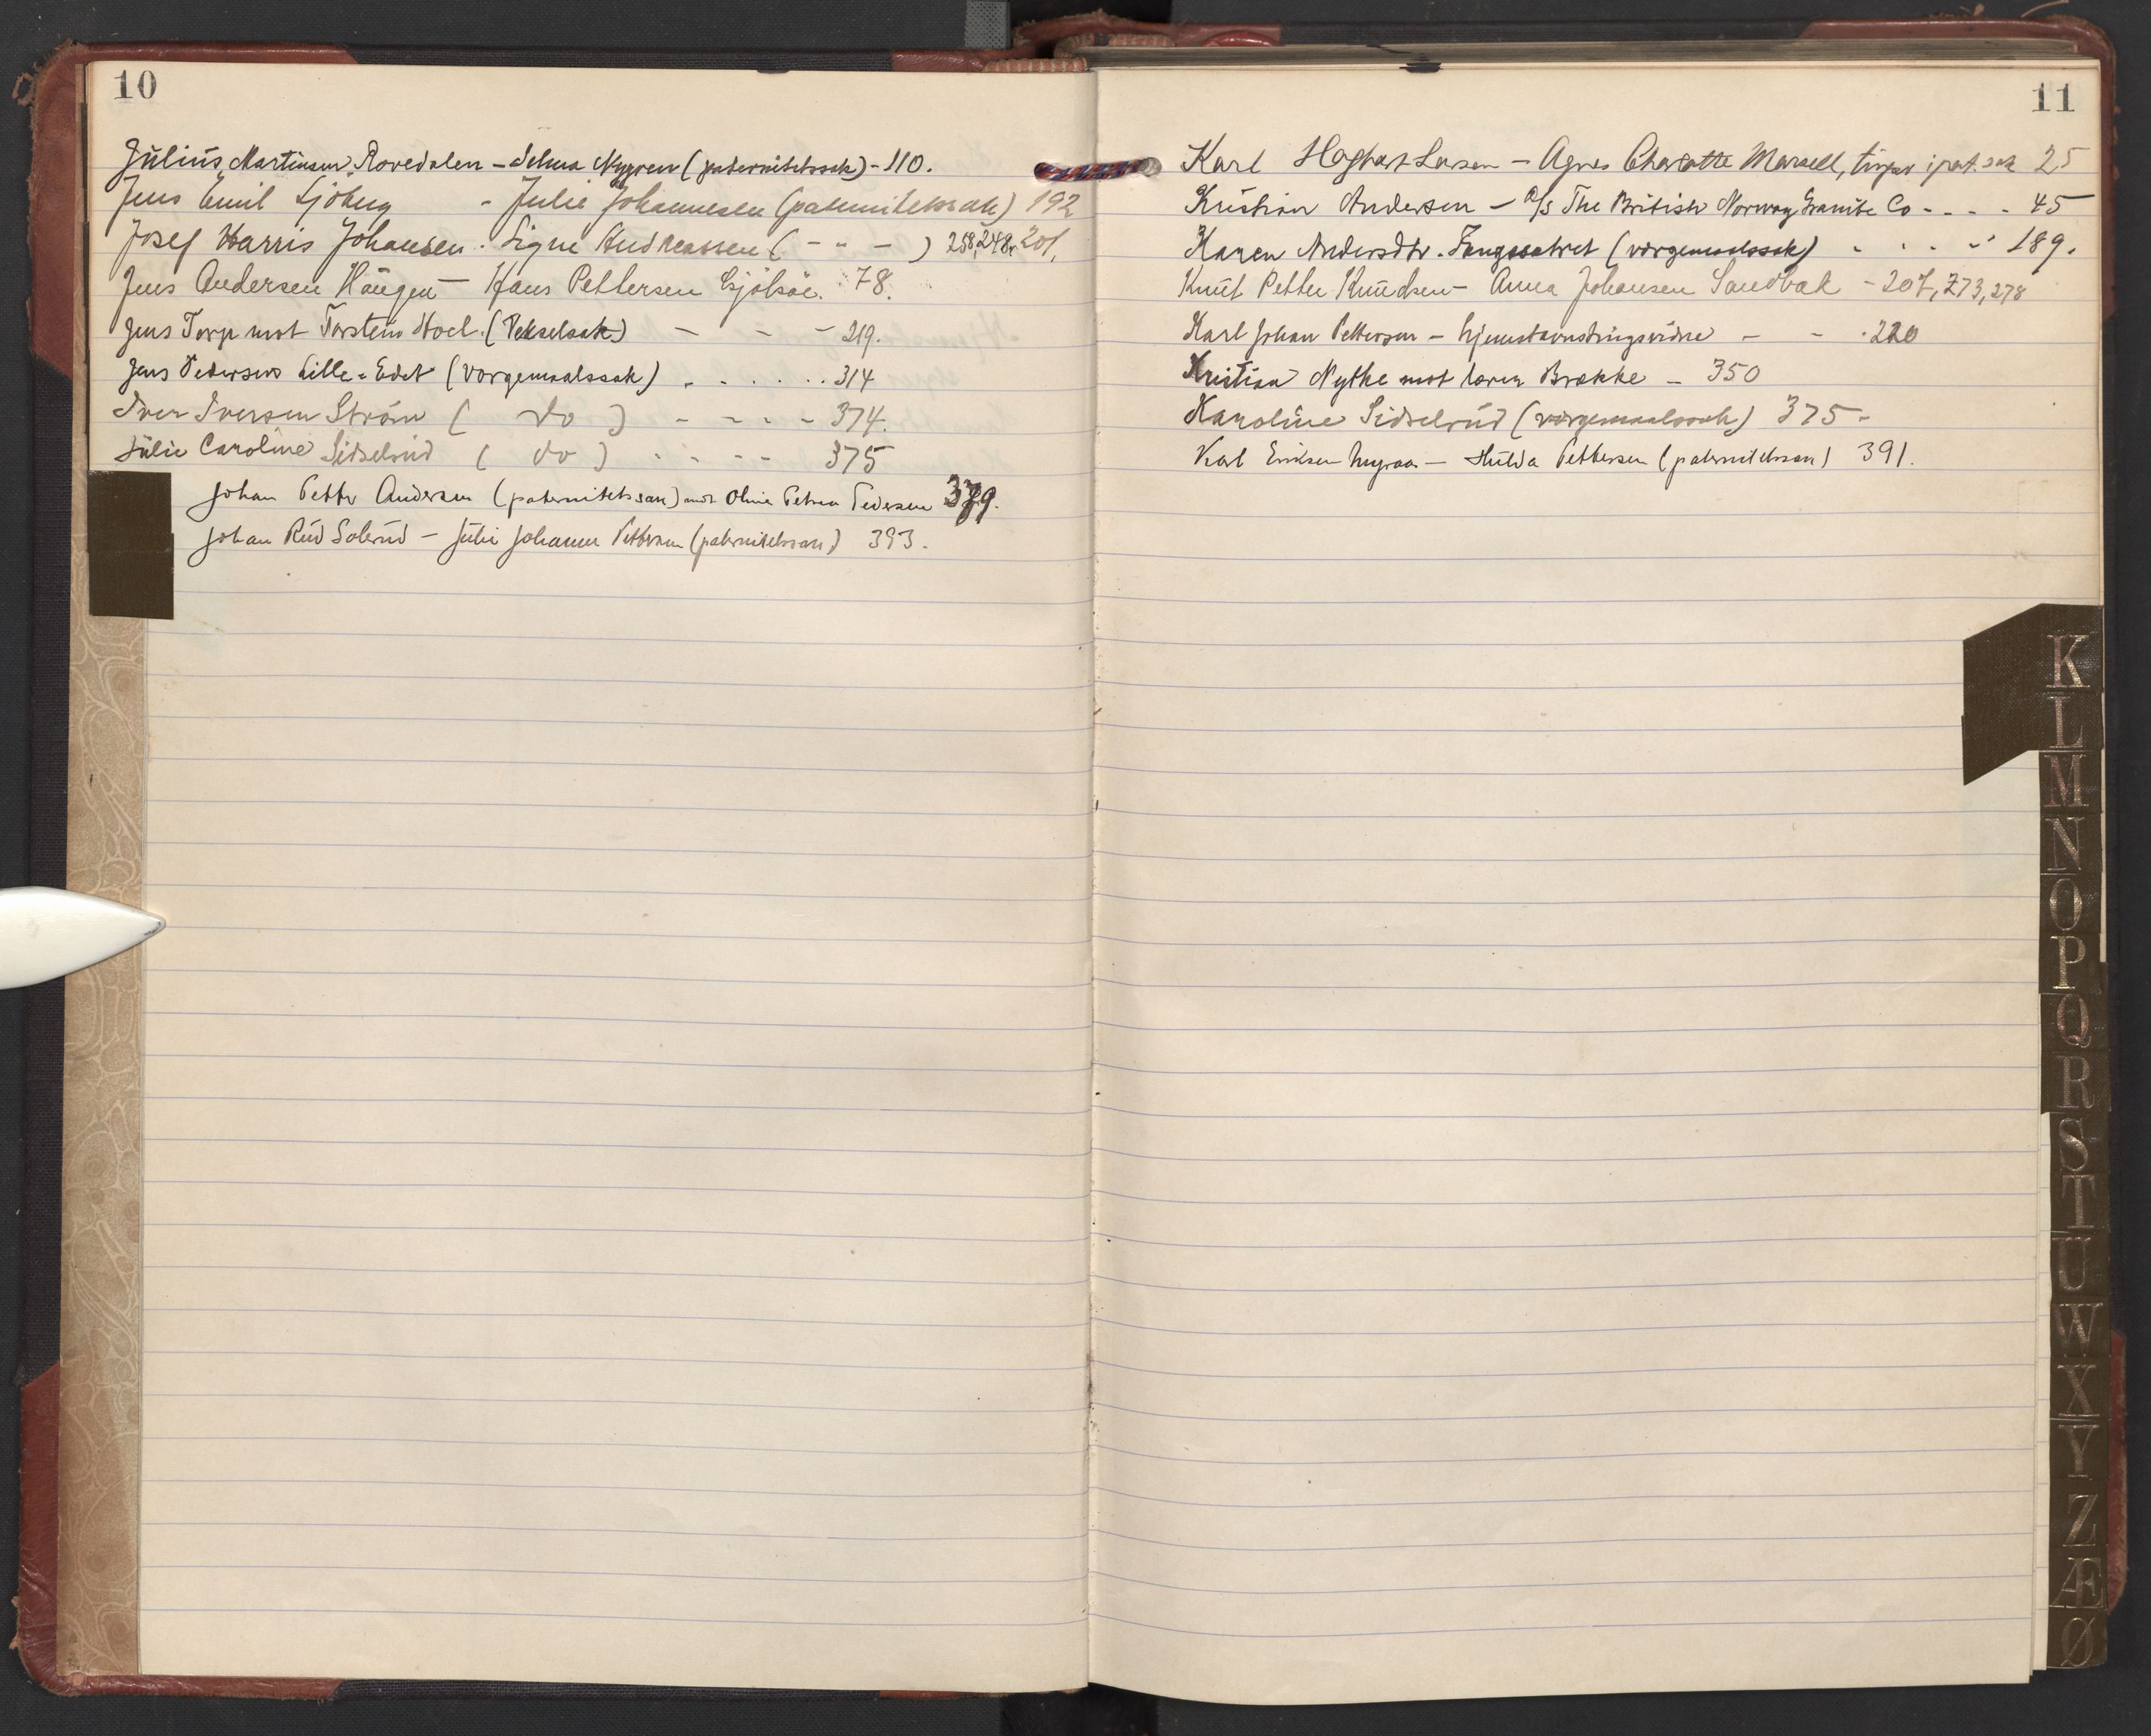 10
Julius Martinsen Rovedalen - Selma Nygren (paternitetssak) - 110.
Jens Emil Sjöberg - Julie Johannesen (paternitetssak) 192
Josef Harris Johansen - Signe Andreassen ( - " - ) 258, 248, 201,
Jens Andersen Haugen - Hans Pettersen 78.
Jens Torp mot Torstein Hoel. (Vekselsak) - - - 219.
Jens Pedersens Lille-Edet (vorgemaalssak) . . . . . . 314
Iver Iversen Ström ( do ) - - - - 374.
Julie Caroline Sidselrud ( do ) - - - - 375
Johan Petter Andersen (paternitetssak) mot Oline Petrea Pedersen 379.
Johan Rud Solerud - Julie Johanne Pettersen (paternitetssak) 393.
11
Karl Hagbart Larsen - Agnes Charlotte Marsell, i pat. sak 25
Kristian Andersen - A/S The British Norway Granite Co - - - - 45
Karen Andersdtr. (vorgemaalssak) - - - - 189.
Knut Petter Knudsen - Anna Johansen Sandbak - 207, 273, 278
Karl Johan Pettersen - - - 220
Kristian Nythe mot Brække - 350
Karoline Sidselrud (vorgemaalssak) 375-
Karl Eriksen Myraa - Hulda Pettersen (paternitetssak) 391.
K
L
M
N
O
P
Q
R
S
T
U
W
X
Y
Z
Æ
Ø